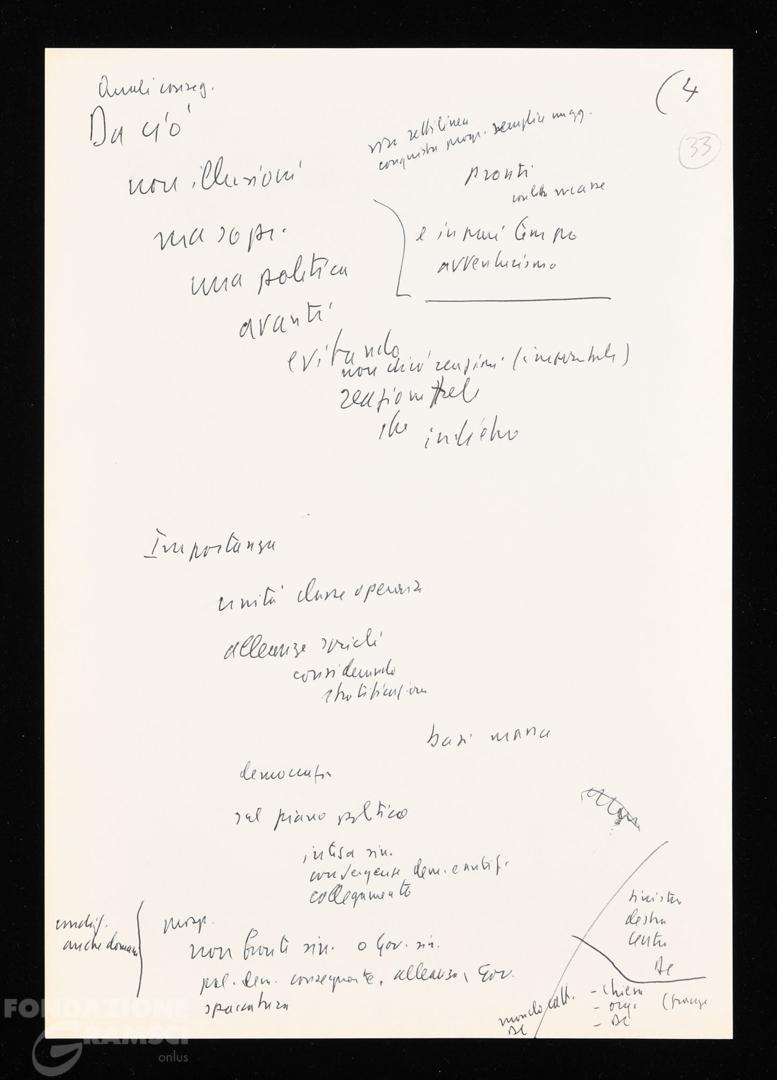 Quali conseg.
(4
33
Da ciò
non illusioni
via rettilinea
conquista prog. semplice magg.
pronti
con lotte masse
ma sopr.
e in pari tempo
avventurismo
una politica
avanti
evitando
non dico reazioni (inevitabili)
reazioni tali
che indietro
Importanza
unità classe operaia
alleanze sociali
considerando
stratificazioni
basi massa
democrazia
sul piano politico
intesa sin.
convergenze dem. e antif.
collegamento
condiz.
anche domani
prosp.
non fronti sin. o Gov. sin.
pol. dem. conseguente, alleanze, Gov.
spaccatura
sinistra
destra
centro
DC
mondo catt.
DC
- Chiesa
- org.
- DC
FONDAZIONE
GRAMSCI
onlus